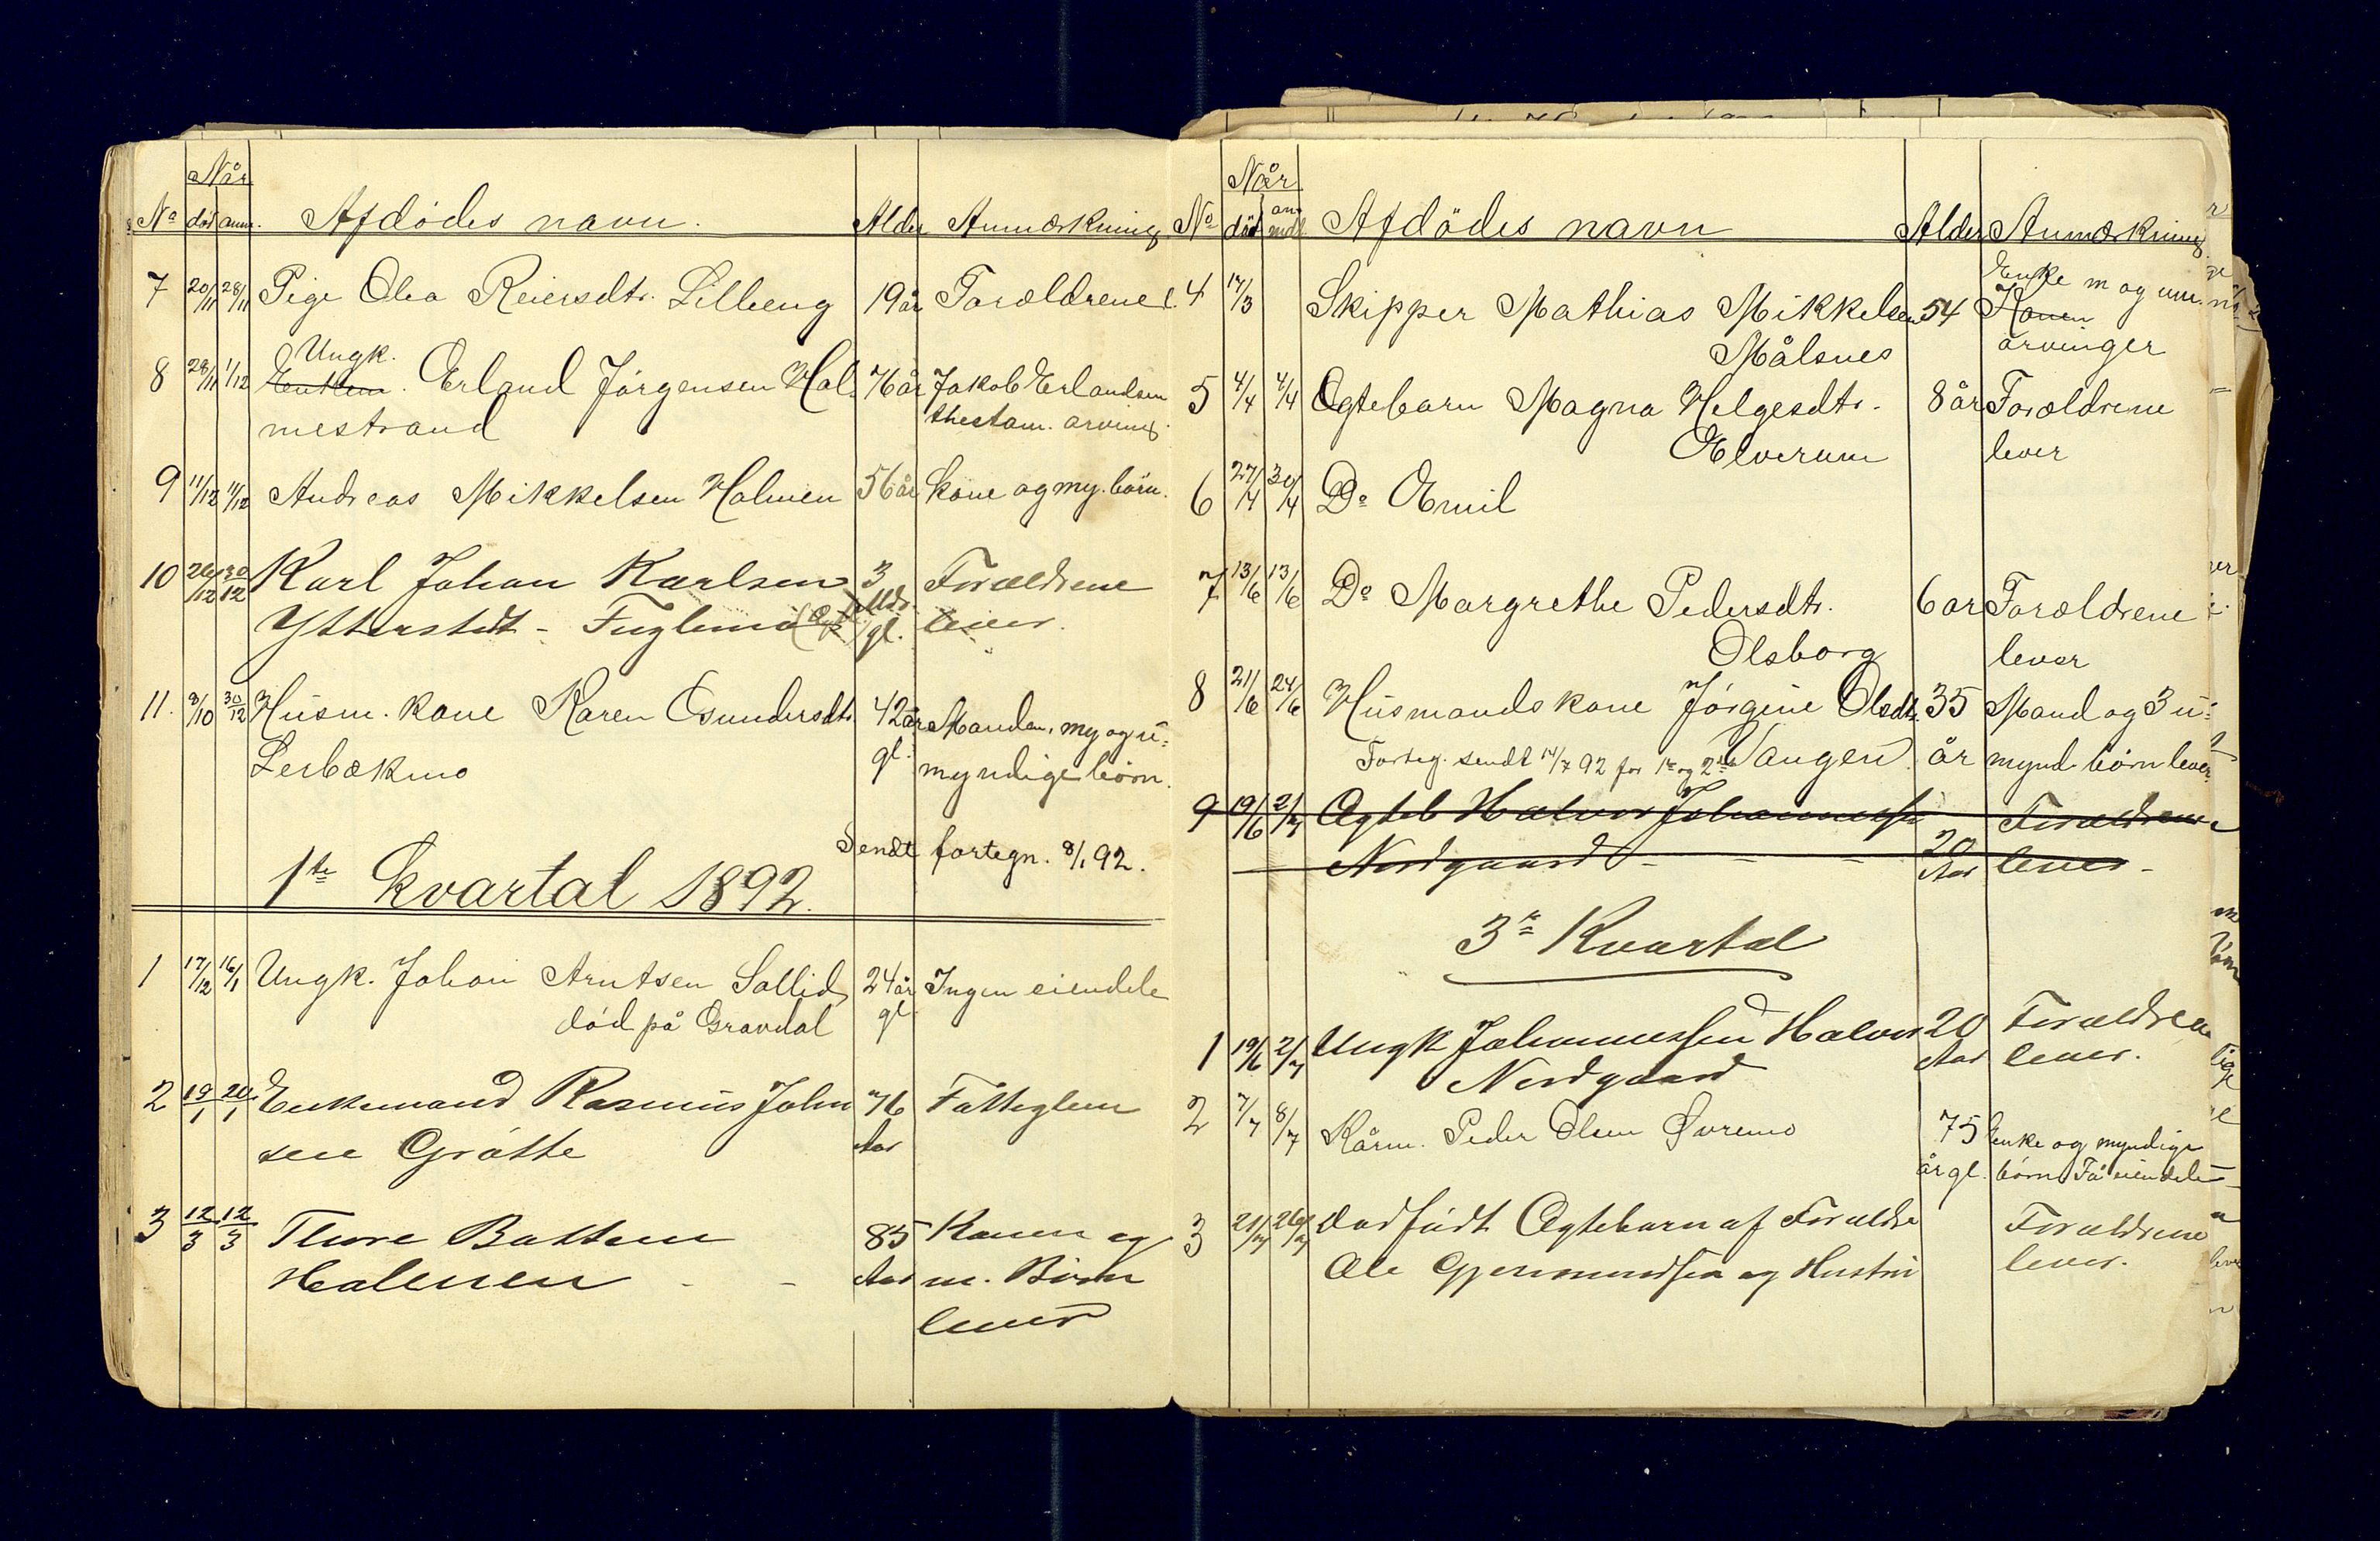 Når
No død anm. Afdödes navn. Alder Anmærkning
7 20/11 28/11 Pige Olea Reiersdtr. Lilleeng 19 år Forældrene l.
Ungk.
8 28/11 1/12 Enkem. Erland Jörgensen Hol 76 år Jakob Erlandsen
mestrand thestam. arving.
9 11/12 11/12 Andreas Mikkelsen Holmen 56 år Kone og my. börn.
10 26/12 30/12 Karl Johan Karlsen 3 Forældrene
Ytterstedt - Fuglemo gl. lever.
11. 8/10 30/12 Husm. kone Karen Osmundersdtr. 42 år Manden, my og u-
Lerbækmo gl. myndige börn.
Sendt fortegn. 8/1 92.
1te Kvartal 1892.
1 17/12 16/1 Ungk. Johan Arntsen Sollid, 24 år Ingen eiendele
död på Gravdal gl.
2 19/1 20/1 Enkemand Rasmus John 76 Fattiglem
sen Gråtte Aar
3 12/3 12/3 Thore Bottem 85 Konen og
Holmen - - Aar m. Börn
lever
Når
No död anmdl. Afdödes navn Alder Anmærkning
Enke m og um.
4 17/3 Skipper Mathias Mikkelsen 54 Konen
Målsnes arvinger
5 4/4 4/4 Ægtebarn Magna Helgesdtr. 8 år Forældrene
Elverum lever
6 27/4 30/4 Do Emil
7 13/6 13/6 Do Margrethe Pedersdtr. 6 år Forældrene
Olsborg lever
8 21/6 24/6 Husmandskone Jörgine Olsdtr. 35 Mand og 3 u-
Forteg. sendt 14/7 92 for 1ste og 2det Vangen. år mynd. börn lever.
9 19/6 2/7 Ægteb Halvor Johannessen Forældrene
Nordgaard - - - 20 Aar lever -
3die Kvartal
1 19/6 2/7 Ungk Johannessen Halvor 20 Forældrene
Nordgaard Aar lever.
2 7/7 8/7 Kårm. Peder Olsen Øvremo 75 Enke og myndige
år gl. börn Få eiendele
3 21/7 26/7 Dødfödt Ægtebarn af Forældre Forældrene
Ole Gjermundsen og Hustru lever.